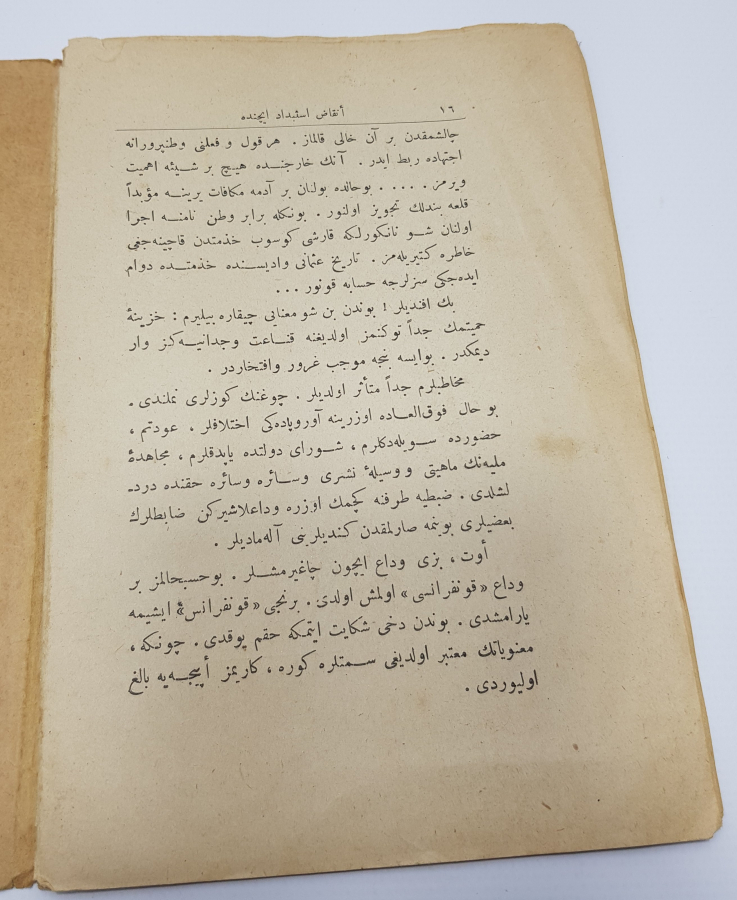 ١٦
أنقاض استبداد ايچنده
چالشمقدن بر آن خالی قالماز . هر قول و فعلنی وطنپرورانه
اجتهاده ربط ايدر . آنك خارجنده هيچ بر شيئه اهميت
ويرمز . . . . . بوحالده بولنان بر آدمه مكافات يرينه مؤبداً
قلعه بندلك تجويز اولنور . بونكله برابر وطن نامنه اجرا
اولنان شو نانكورلكه قارشی كوسوب خذمتدن قاچينه‌جغی
خاطره كتيريله‌مز . تاريخ عثمانی وادیسنده خذمتده دوام
ايده‌جكی سزلرجه حسابه قونور . . .
بك افنديلر ! بوندن بن شو معنايی چيقاره بيليرم : خزينهٔ
حميتمك جداً توكنمز اولديغنه قناعت وجدانيه‌كز وار
ديمكدر . بوايسه بنجه موجب غرور وافتخاردر .
مخاطبلرم جداً متأثر اولديلر . چوغنك كوزلری نملندی .
بو حال فوق‌العاده اوزرينه آوروپاده‌كی اختلافلر ، عودتم ،
حضورده سويله‌دكلرم ، شورای دولتده ياپدقلرم ، مجاهدهٔ
مليه‌نك ماهيتی و وسيلهٔ نشری وسائره وسائره حقنده درد-
لشلدی . ضبطيه طرفنه كچمك اوزره وداعلاشيركن ضابطلرك
بعضيلری بوينمه صارلمقدن كنديلرينی آله‌ماديلر .
أوت ، بزی وداع ايچون چاغيرمشلر . بوحسبحالمز بر
وداع «قونفرانسی» اولمش اولدی . برنجی «قونفرانس» ايشيمه
يارامشدی . بوندن دخی شكايت ايتمكه حقم يوقدی . چونكه ،
معنوياتك معتبر اولديغی سمتلره كوره ، كاريمز أپيجه‌يه بالغ
اوليوردی .